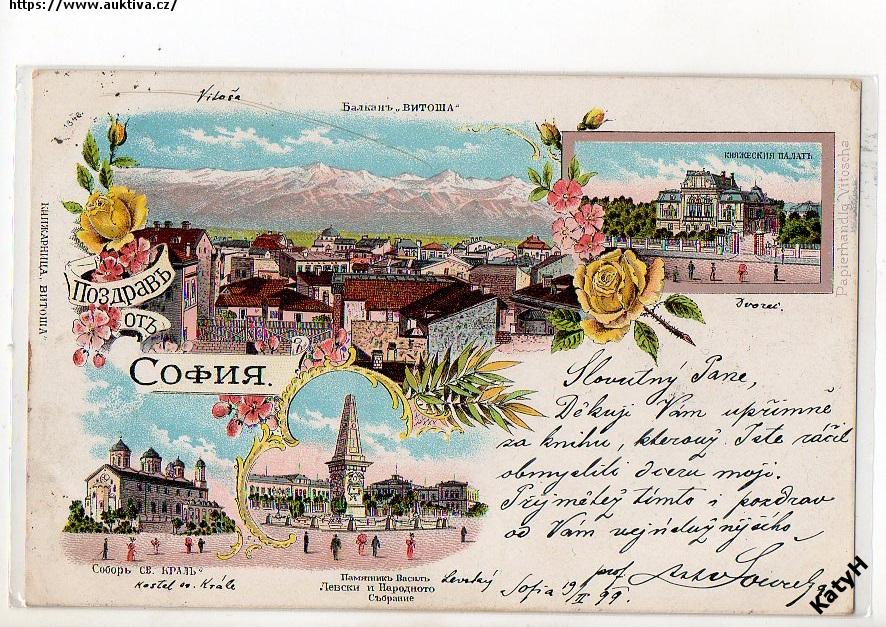 https://www.auktiva.cz/
Vitoša
Балканъ „ВИТОША“
КНЯЖЕСКИЯ ПАЛАТЪ
Papierhandlg Vitoscha
КНИЖАРНИЦА „ВИТОША“
Поздравъ
отъ
София.
Dvorec.
Slovutný Pane,
Děkuji Vám upřímně
za knihu, kterouž jste ráčil
obmysliti dceru moji.
Přijmětež tímto i pozdrav
od Vám
Соборъ „СВ. КРАЛЬ“
Kostel sv. Krále
Паметникъ Василъ
Левски и Народното
Събрание
Levský
Sofia 19/II 99.
prof.
KatyH